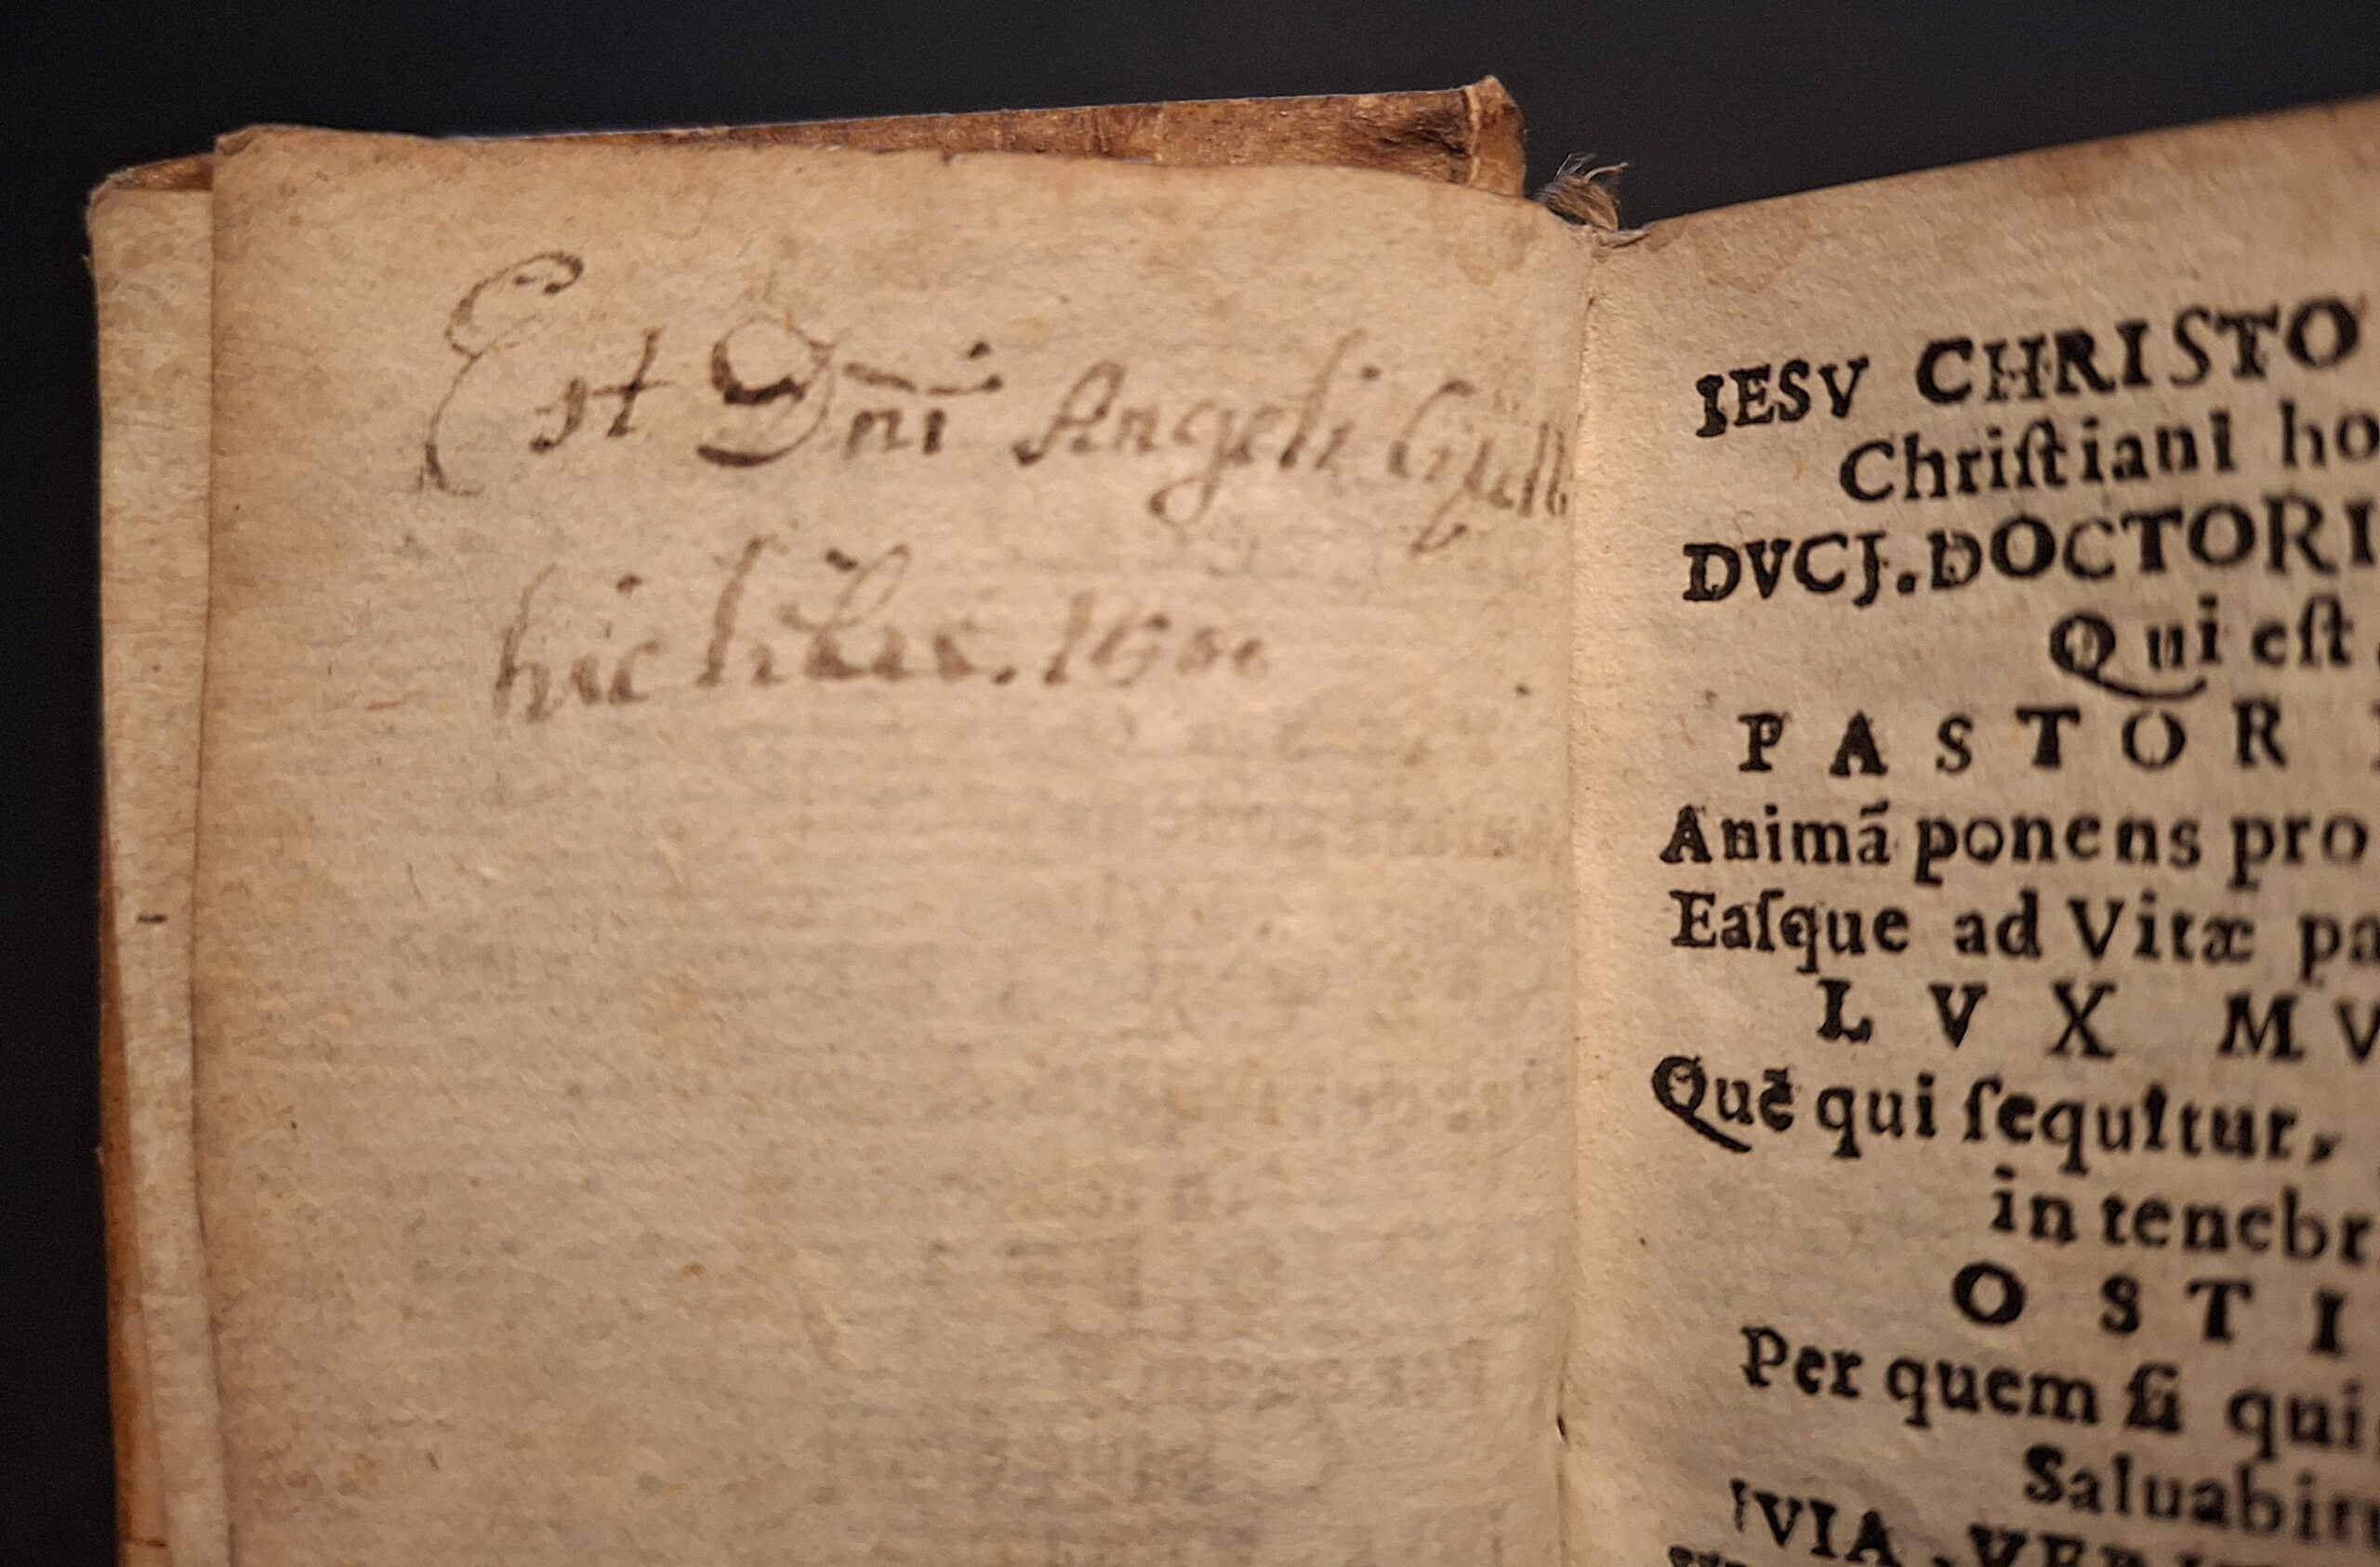 Est Dñi Angeli
hic liber. 16
IESV CHRISTO
Chriſtiani ho
DVCJ. DOCTORI
Qui eſt
PASTOR
Animã ponens pro
Eaſque ad Vitæ pa
LVX MV
Quẽ qui ſequitur,
in tenebr
OSTI
Per quem ſi qui
Saluabitu
VIA. VER